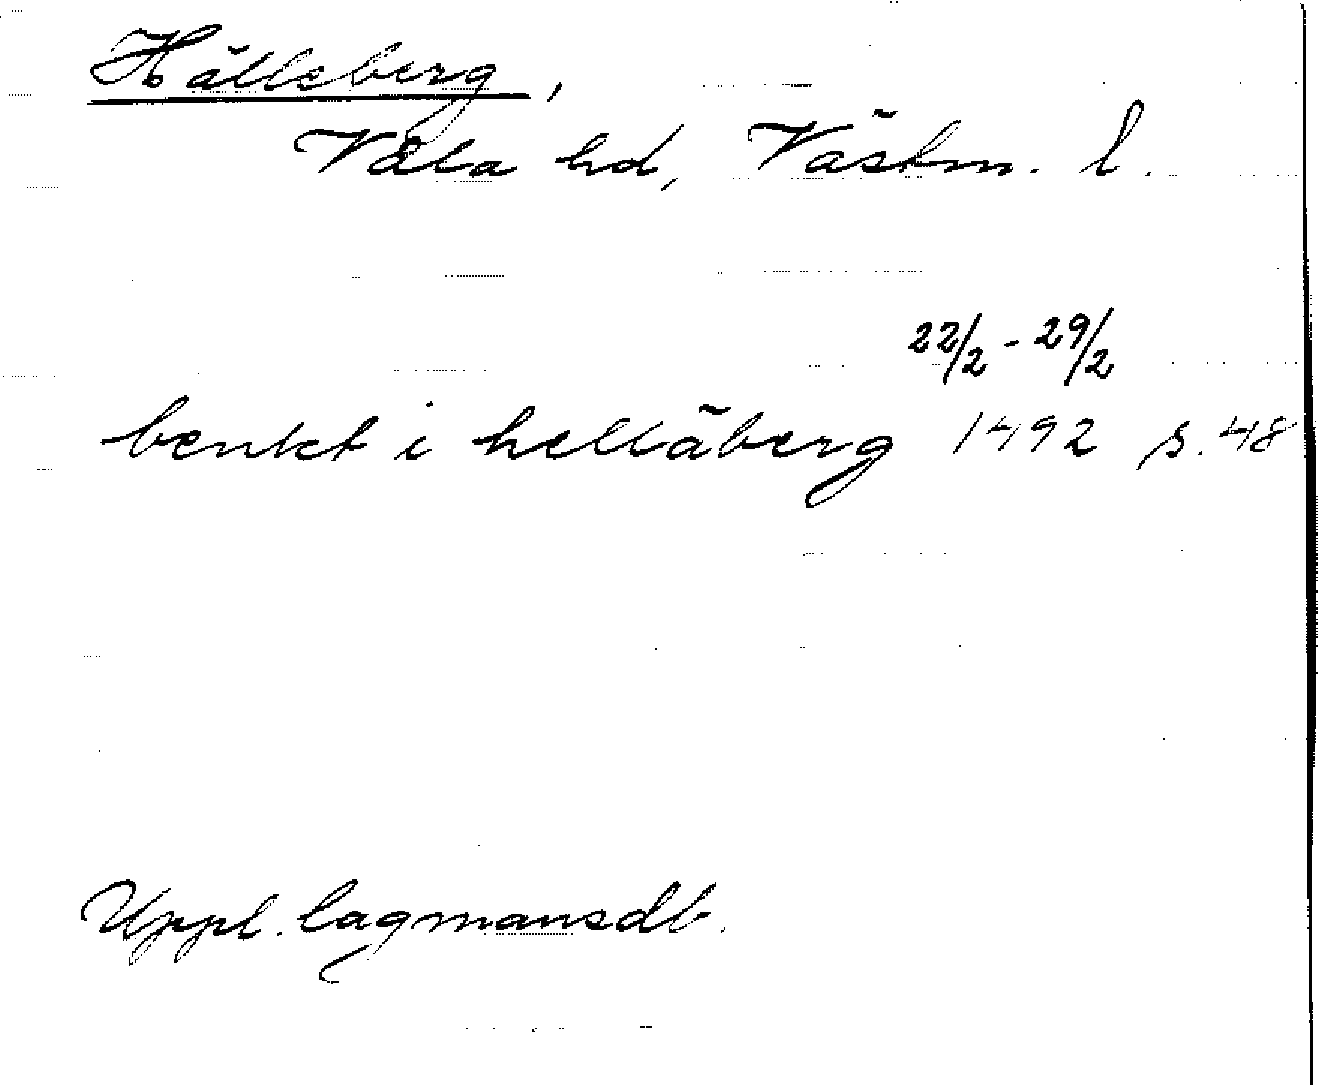 Hälleberg,
Våla hd, Västm. l.
22/2 - 29/2
benkt i helläberg 1492 s. 48
Uppl. lagmansdb.